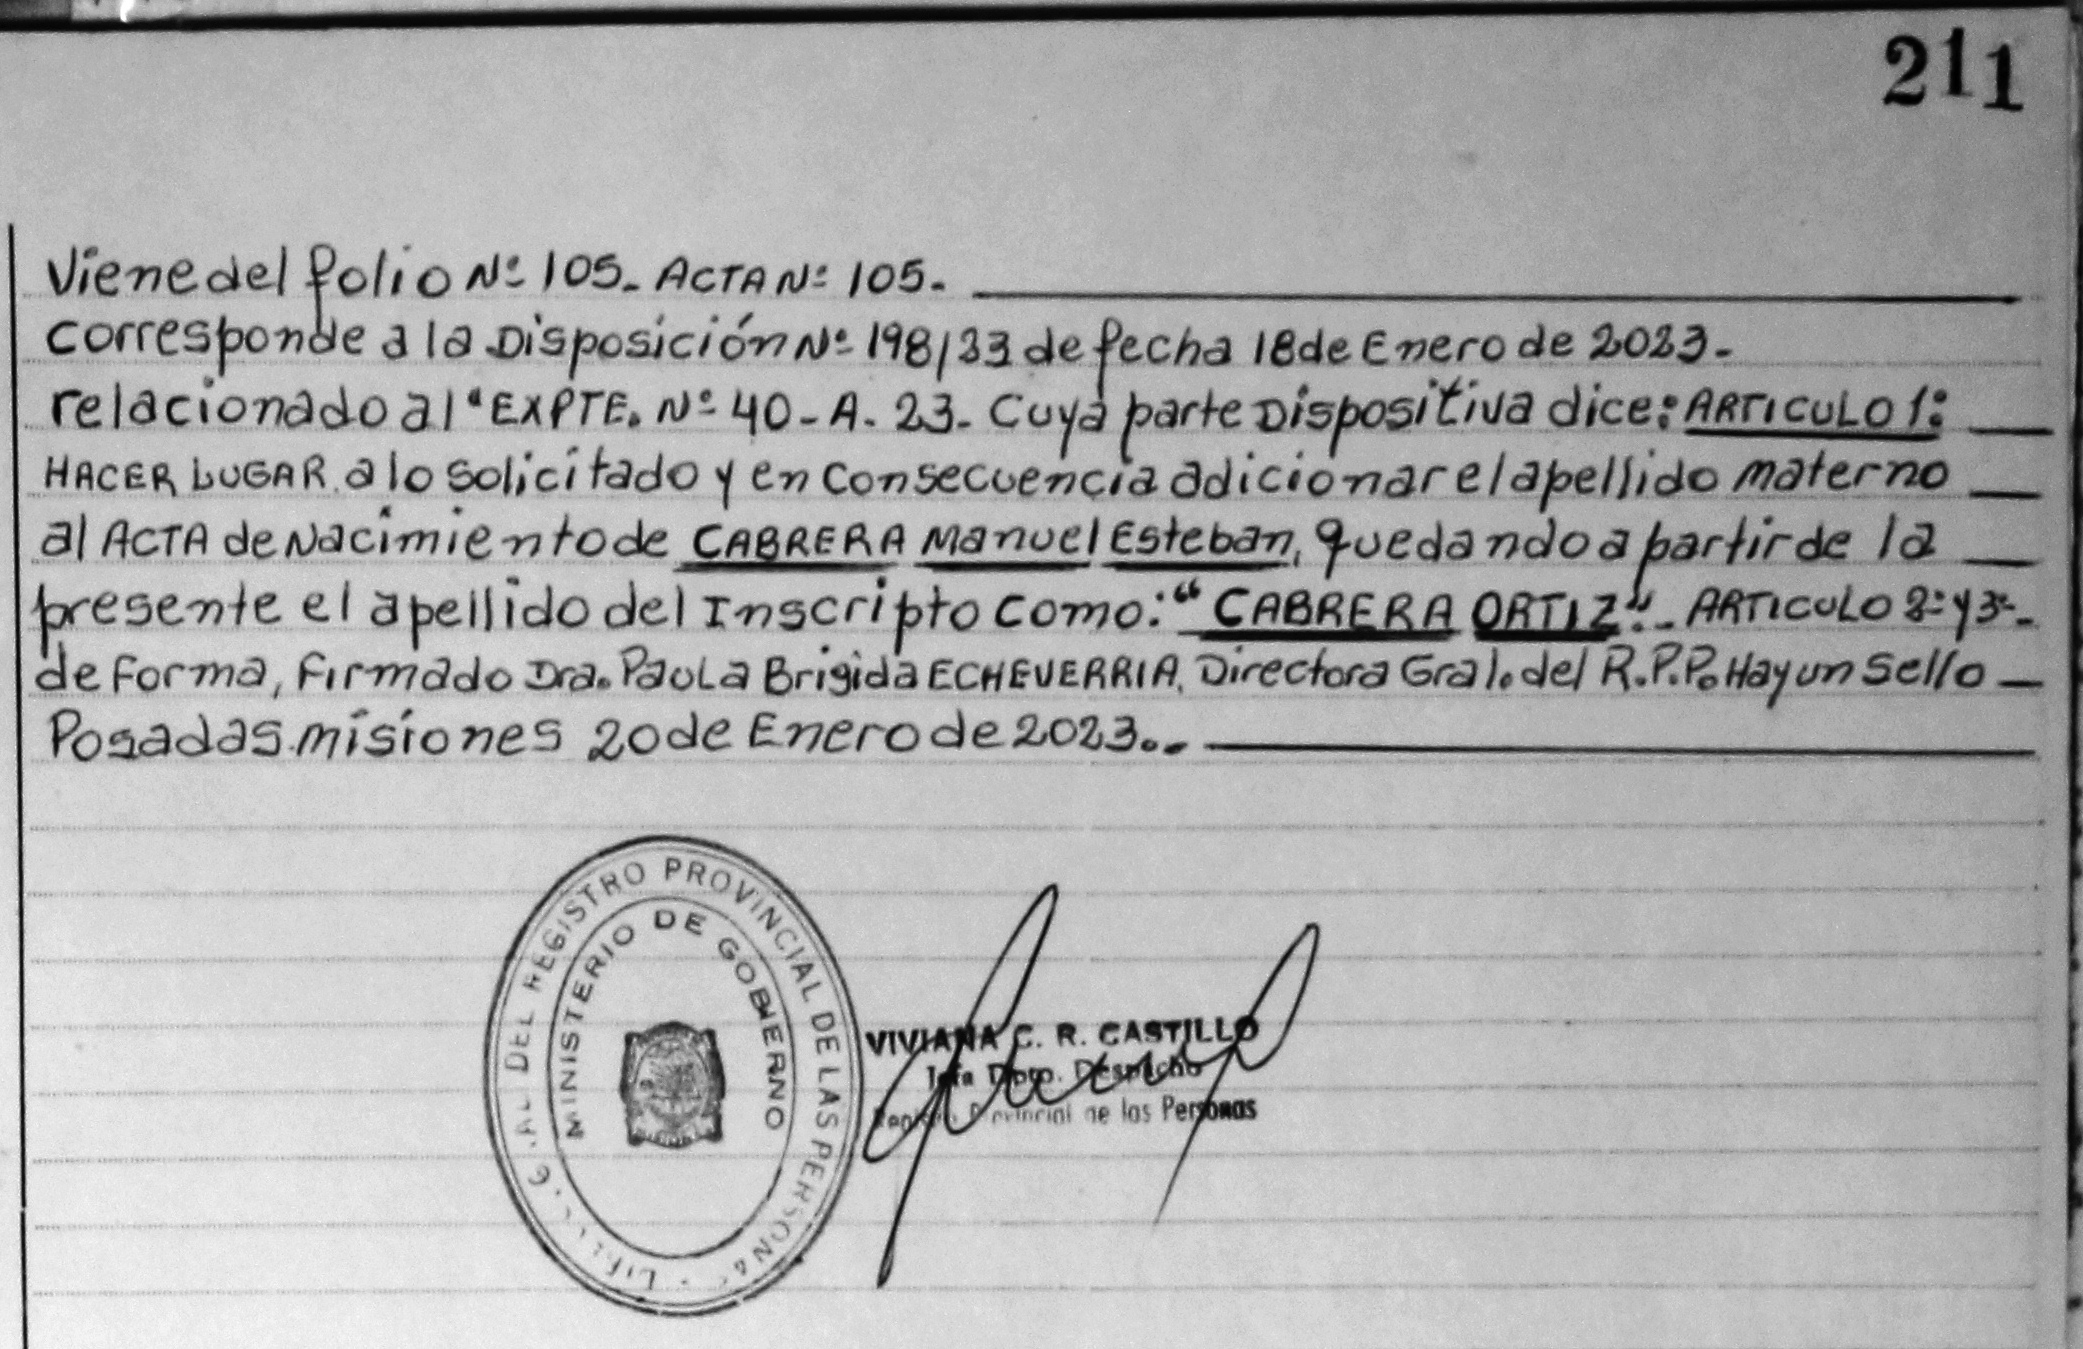 211
Viene del folio Nº 105. ACTA Nº 105.
corresponde a la Disposición Nº 198/23 de fecha 18 de Enero de 2023.
relacionado al "EXPTE. Nº 40-A. 23. Cuya parte Dispositiva dice: ARTICULO 1:
HACER LUGAR a lo solicitado y en consecuencia adicionar el apellido materno
al ACTA de Nacimiento de CABRERA Manuel Esteban, quedando a partir de la
presente el apellido del Inscripto como: "CABRERA ORTIZ". ARTICULO 2º y 3º.
de forma, Firmado Dra. Paola Brigida ECHEVERRIA, Directora Gral. del R.P.P. Hay un Sello
Posadas misiones 20 de Enero de 2023..
GRAL DEL REGISTRO PROVINCIAL DE LAS PERSONAS
MINISTERIO DE GOBIERNO
VIVIANA C. R. CASTILLO
Jefa Dpto. Despacho
Registro Provincial de las Personas